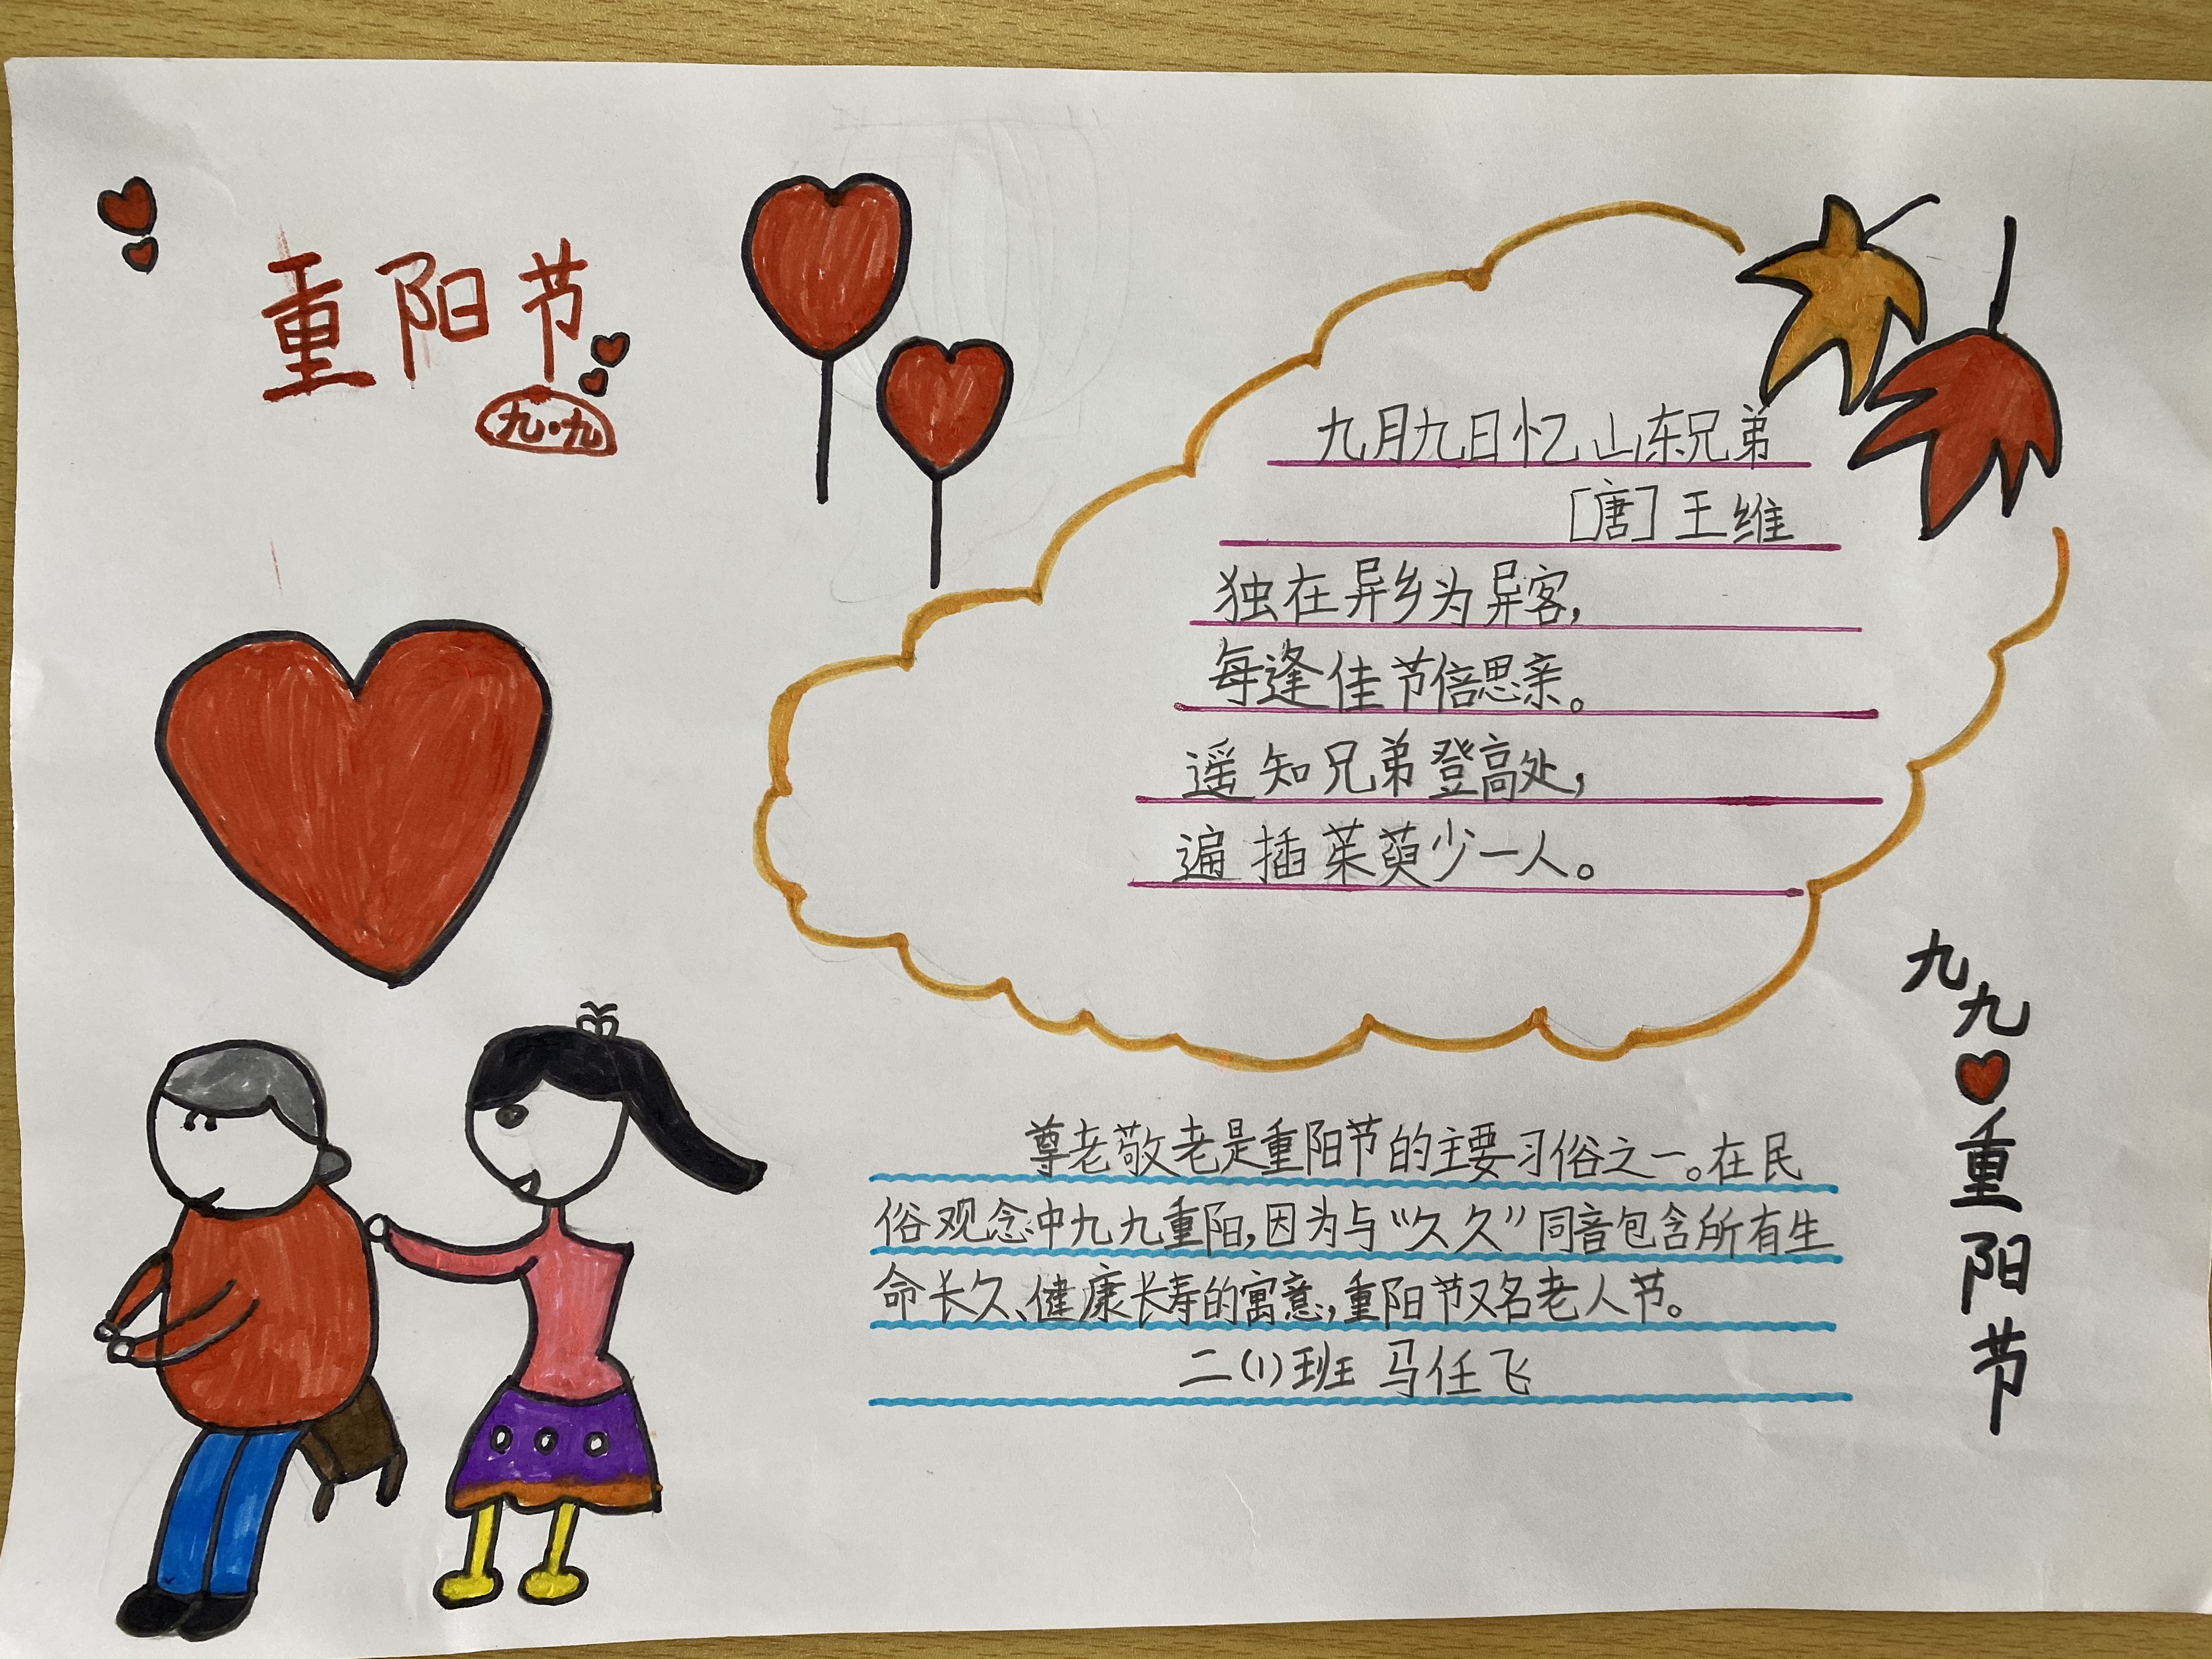 重阳节
九·九
九月九日忆山东兄弟
[唐]王维
独在异乡为异客,
每逢佳节倍思亲。
遥知兄弟登高处,
遍插茱萸少一人。
九九
重阳节
尊老敬老是重阳节的主要习俗之一。在民
俗观念中九九重阳,因为与“久久”同音包含所有生
命长久、健康长寿的寓意,重阳节又名老人节。
二(1)班 马任飞